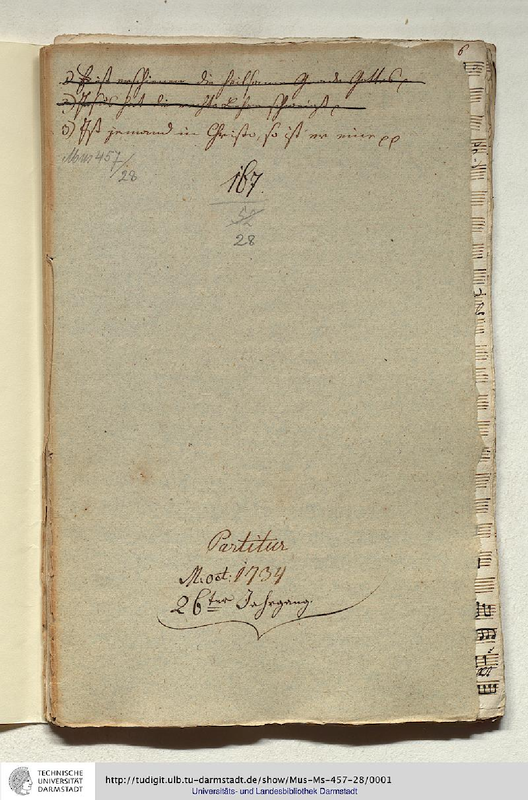 6
1) Es ist erschienen die heilsame Gnade Gottes
2)
3) Ist jemand in Christo, so ist er eine pp
Mus 457/28
167.
52
28
Partitur
M. Oct: 1734
26ter Jahrgang.
TECHNISCHE
UNIVERSITÄT
DARMSTADT
http://tudigit.ulb.tu-darmstadt.de/show/Mus-Ms-457-28/0001
Universitäts- und Landesbibliothek Darmstadt